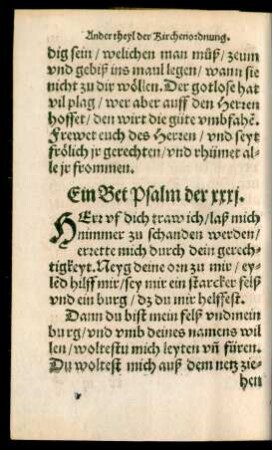 Ander theyl der Kirchenordnung.
dig sein/ welichen man müß/ zeum
vnd gebiß ins maul legen/ wann sie
nicht zu dir wöllen. Der gotlose hat
vil plag/ wer aber auff den Herren
hoffet/ den wirt die güte vmbfahē.
Frewet euch des Herren/ vnd seyt
frölich jr gerechten/ vnd rhümet al-
le jr frommen.
Ein Bet Psalm der xxxj.
HErr vf dich traw ich/ laß mich
nimmer zu schanden werden/
errette mich durch dein gerech-
tigkeyt. Neyg deine orn zu mir/ ey-
lēd hilff mir/ sey mir ein starcker felß
vnd ein burg/ dz du mir helffest.
Dann du bist mein felß vnd mein
burg/ vnd vmb deines namens wil
len/ woltestu mich leyten vñ füren.
Du woltest mich auß dem netz zie-
hen